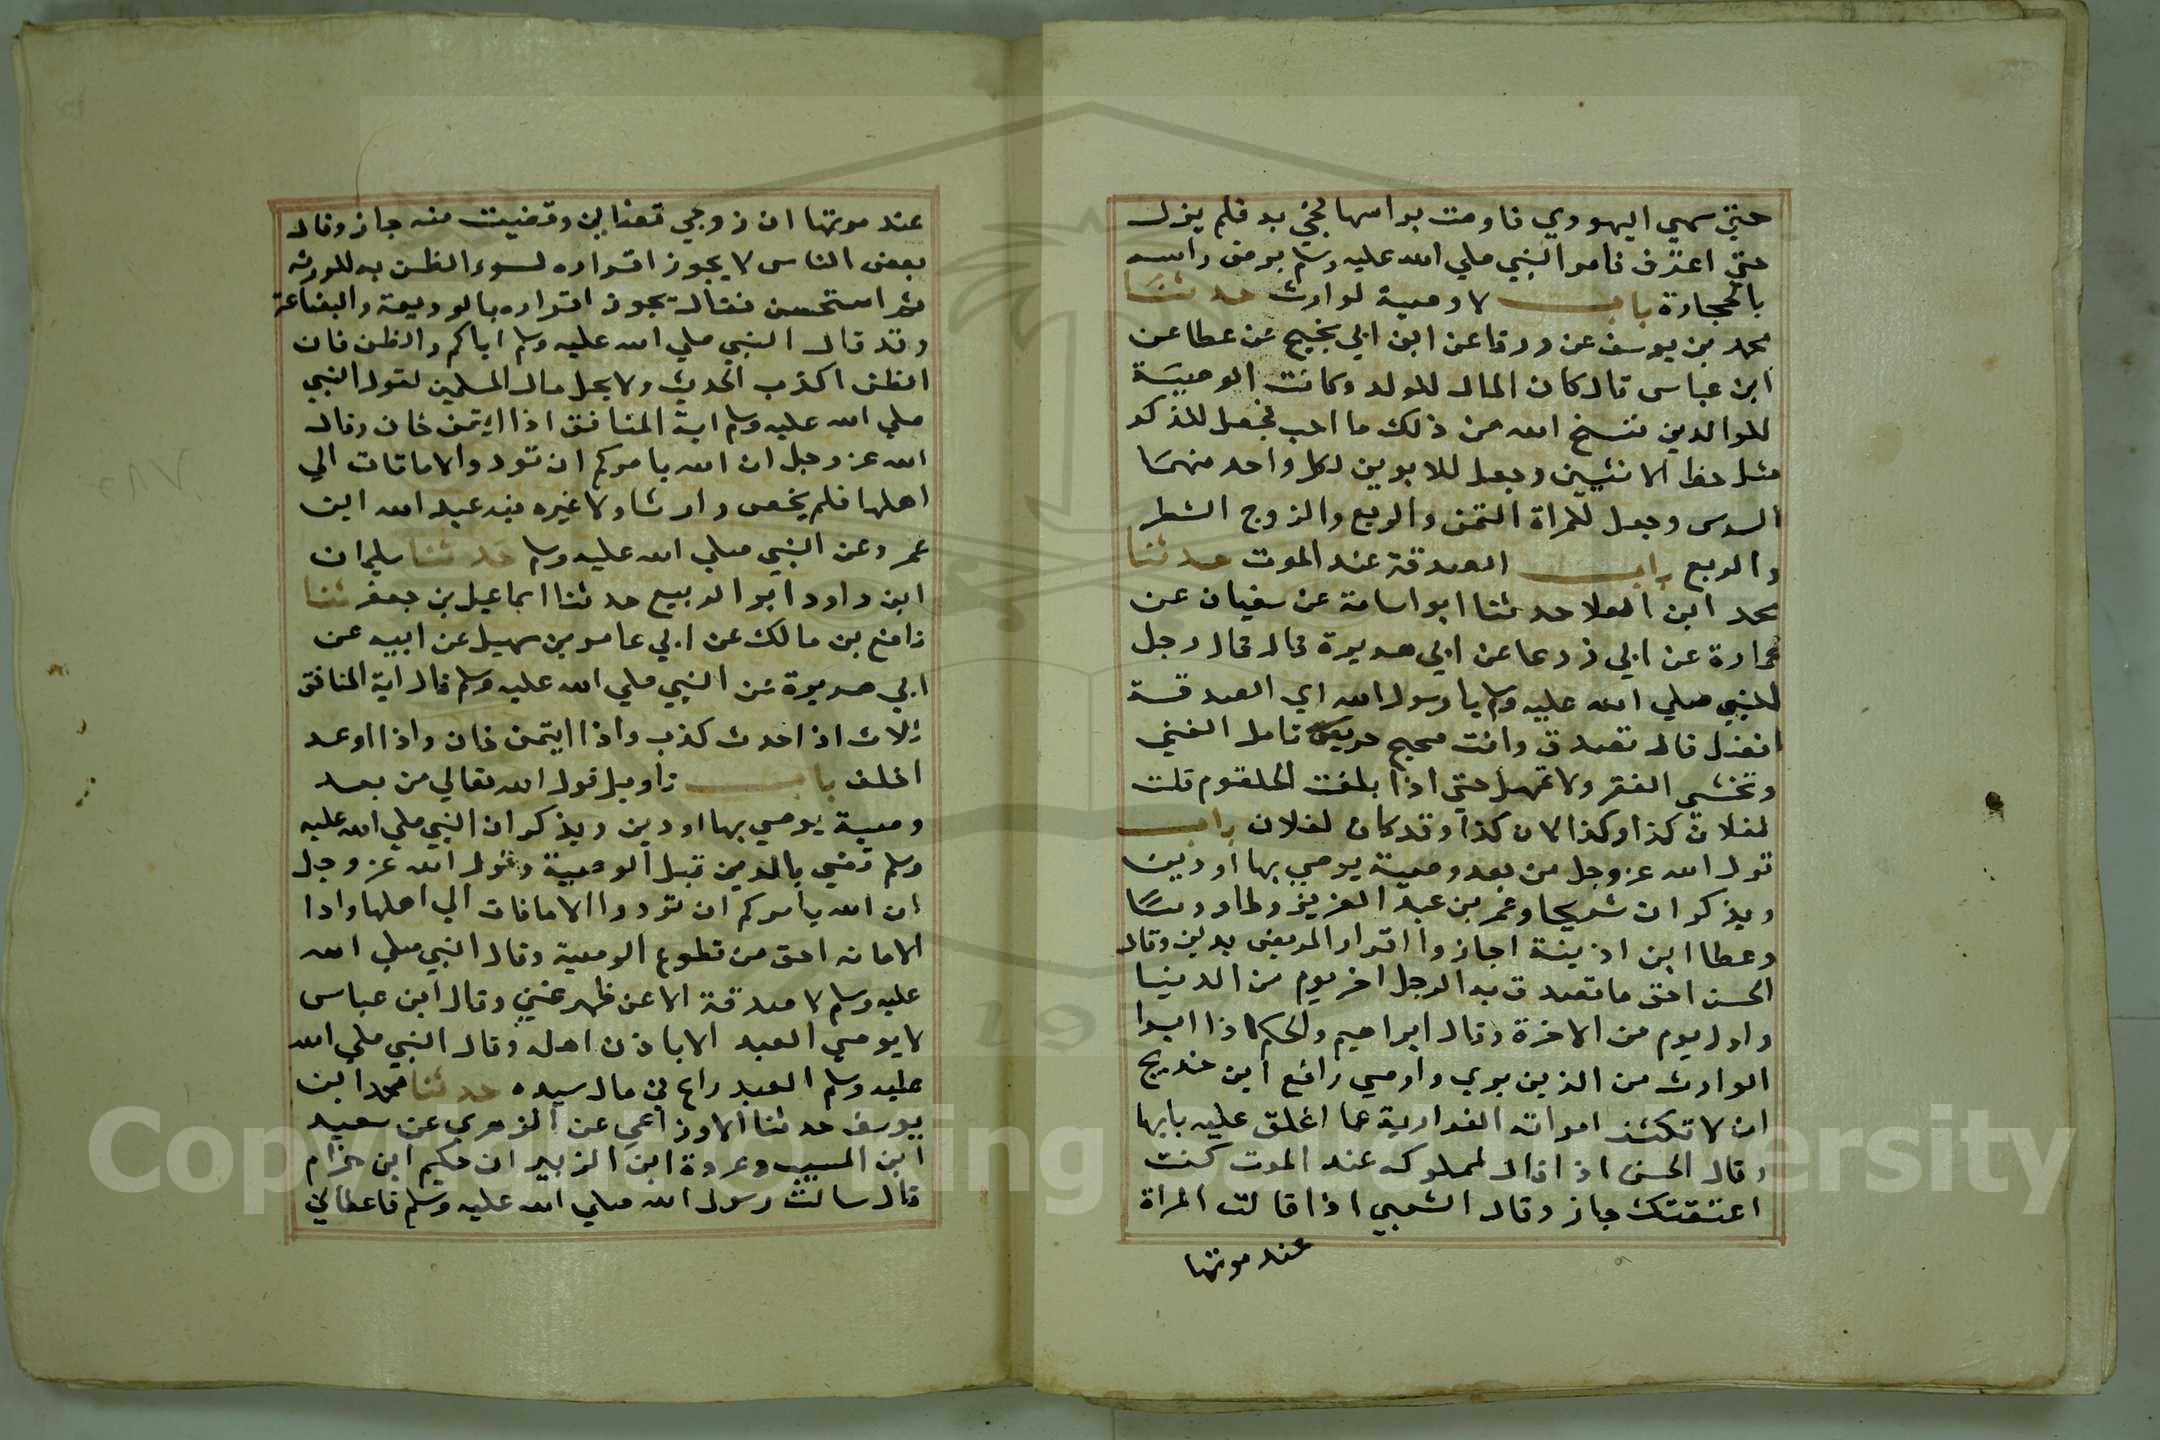 حتي سمي اليهودي فاومت براسها فجي به فلم يزل
حتي اعترف فامر النبي صلي الله عليه وسلم برض راسه
بالحجارة باب لا وصية لوارث حدثنا
محمد بن يوسف عن ورقا عن ابن ابي نجيح عن عطا عن
ابن عباس قال كان المال للولد وكانت الوصية
للوالدين فنسخ الله من ذلك ما احب فجعل للذكر
مثل حظ الانثيين وجعل للابوين لكل واحد منهما
السدس وجعل للمراة الثمن والربع والزوج الشطر
والربع باب الصدقة عند الموت حدثنا
محمد ابن العلا حدثنا ابو اسامة عن سفيان عن
عمارة عن ابي زرعا عن ابي هريرة قال قال رجل
للنبي صلي الله عليه وسلم يا رسول الله اي الصدقة
افضل قال تصدق وانت صحيح حريص تامل الغني
وتخشي الفقر ولا تمهل حتي اذا بلغت الحلقوم قلت
لفلان كذا وكذا الان كذا وقد كان لفلان باب
قول الله عز وجل من بعد وصية يوصي بها او دين
ويذكر ان شريحا وعمر بن عبد العزيز وطاووسا
وعطا ابن اذينة اجازوا اقرار المريض بدين وقال
الحسن احق ما تصدق به الرجل اخر يوم من الدنيا
واول يوم من الاخرة وقال ابراهيم والحكم اذا ابرا
الوارث من الدين بري واوصي رافع ابن خديج
ان لا تكشف امراته الفزارية عما اغلق عليه بابها
وقال الحسن اذا قال لمملوكه عند الموت كنت
اعتقتك جاز وقال الشعبي اذا قالت المراة
عند موتها
عند موتها ان زوجي قضاني وقضيت منه جاز وقال
بعض الناس لا يجوز اقراره لسوء الظن به للورثه
ثم استحسن فقال يجوز اقراره بالوديعة والبضاعة
وقد قال النبي صلي الله عليه وسلم اياكم والظن فان
الظن اكذب الحديث ولا يحل مال المسلمين لقول النبي
صلي الله عليه وسلم اية المنافق اذا ايتمن خان وقال
الله عز وجل ان الله يامركم ان تودوالامانات الي
اهلها فلم يخص وارثا ولا غيره فيه عبد الله ابن
عمر وعن النبي صلي الله عليه وسلم حدثنا سليمان
ابن داود ابو الربيع حدثنا اسماعيل بن جعفر ثنا
نافع بن مالك عن ابي عامر بن سهيل عن ابيه عن
ابي هريرة عن النبي صلي الله عليه وسلم قال اية المنافق
ثلاث اذا حدث كذب واذا ايتمن خان واذا اوعد
اخلف باب تاويل قول الله تعالي من بعد
وصية يوصي بها او دين ويذكر ان النبي صلي الله عليه
وسلم قضي بالدين قبل الوصية وقول الله عز وجل
ان الله يامركم ان تودوا الامانات الي اهلها وادا
الامانه احق من تطوع الوصية وقال النبي صلي الله
عليه وسلم لا صدقة الا عن ظهر غني وقال ابن عباس
لا يوصي العبد الا باذن اهله وقال النبي صلي الله
عليه وسلم العبد راع في مال سيده حدثنا محمد ابن
يوسف حدثنا الاوزاعي عن الزهري عن سعيد
ابن المسيب وعروة ابن الزبير ان حكيم ابن حزام
قال سالت رسول الله صلي الله عليه وسلم فاعطاني
Copyright © King Saud University